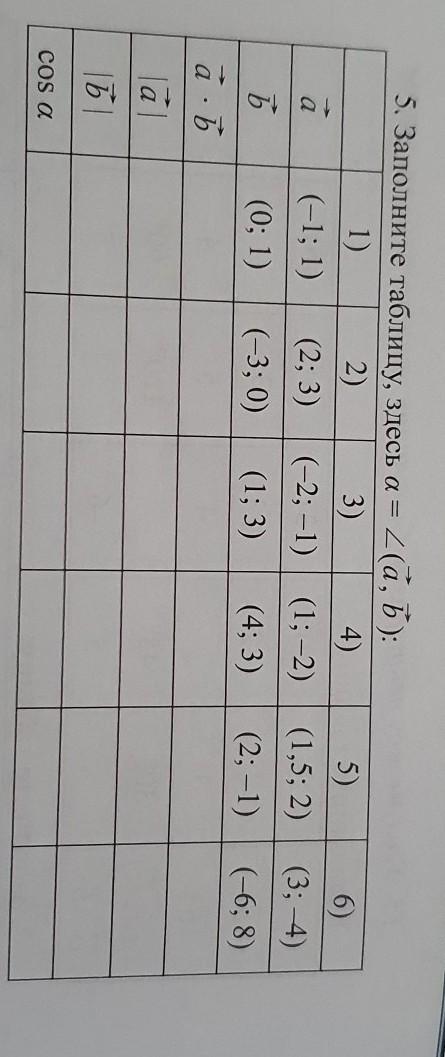 5. Заполните таблицу, здесь α = ∠(a⃗, b⃗):
1) 2) 3) 4) 5) 6)
a⃗ (−1; 1) (2; 3) (−2; −1) (1; −2) (1,5; 2) (3; −4)
b⃗ (0; 1) (−3; 0) (1; 3) (4; 3) (2; −1) (−6; 8)
a⃗ · b⃗
|a⃗|
|b⃗|
cos α